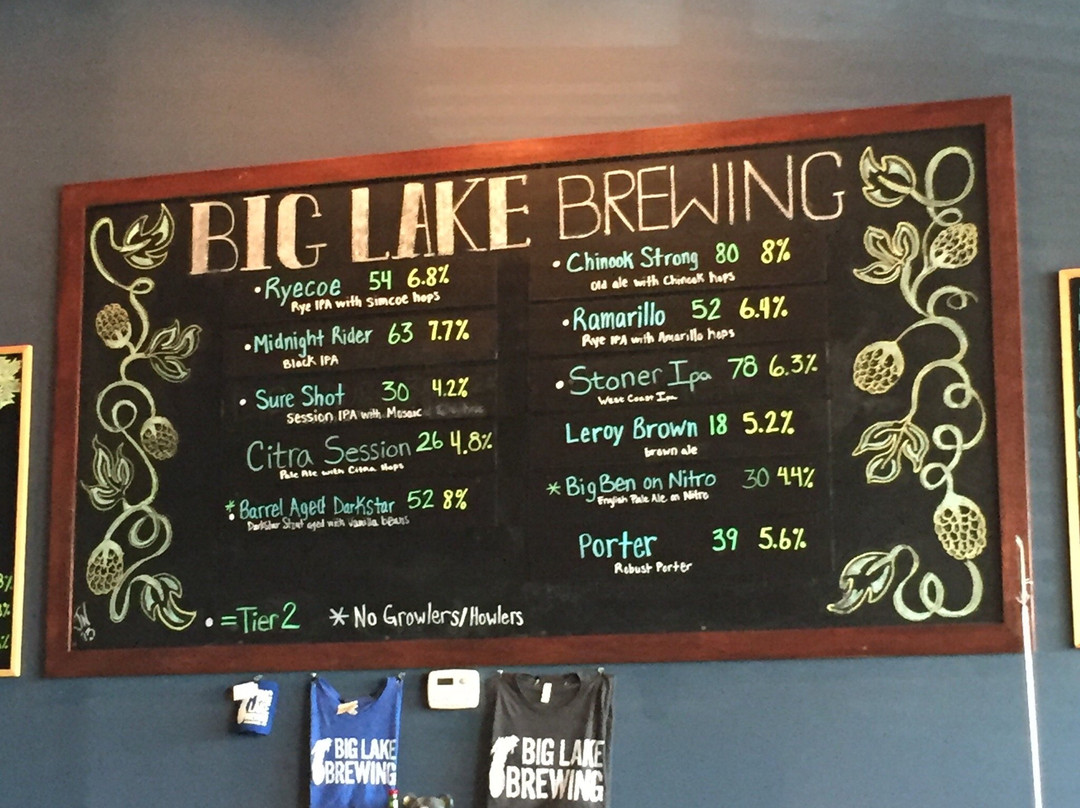 BIG LAKE BREWING
•Ryecoe 54 6.8%
Rye IPA with Simcoe hops
•Midnight Rider 63 7.7%
Black IPA
•Sure Shot 30 4.2%
Session IPA with Mosaic
Citra Session 26 4.8%
Pale Ale with Citra Hops
*•Barrel Aged Darkstar 52 8%
Darkstar Stout aged with vanilla beans
•Chinook Strong 80 8%
Old ale with Chinook hops
•Ramarillo 52 6.4%
Rye IPA with Amarillo hops
•Stoner Ipa 78 6.3%
West Coast Ipa
Leroy Brown 18 5.2%
brown ale
*Big Ben on Nitro 30 4.4%
English Pale Ale on Nitro
Porter 39 5.6%
Robust Porter
• =Tier 2 * No Growlers/Howlers
JW
'15
BIG LAKE
BREWING
BIG LAKE
BREWING